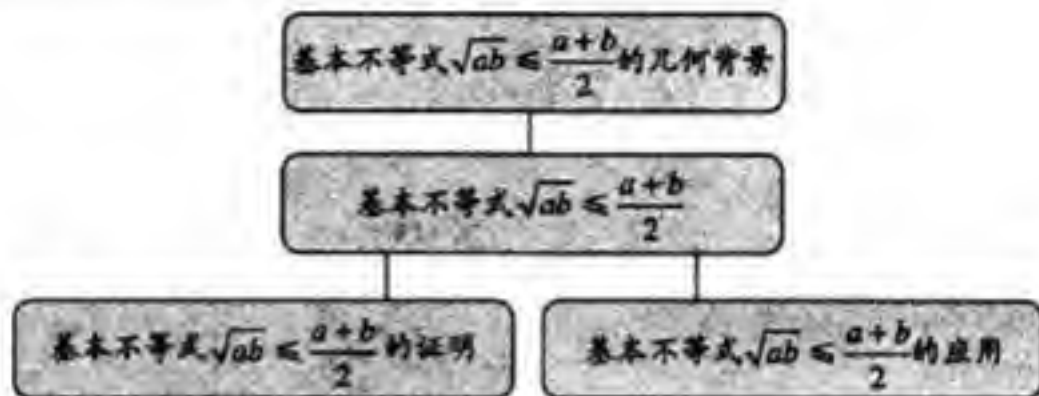 基本不等式$\sqrt{ab} \leqslant \frac{a+b}{2}$的几何背景
基本不等式$\sqrt{ab} \leqslant \frac{a+b}{2}$
基本不等式$\sqrt{ab} \leqslant \frac{a+b}{2}$的证明
基本不等式$\sqrt{ab} \leqslant \frac{a+b}{2}$的应用